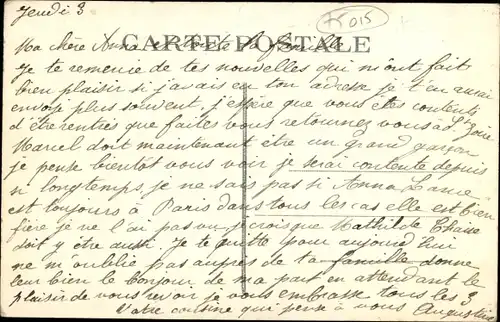 Jeudi 3
75015
CARTE POSTALE
Ma chère Anna et toute la famille
Je te remercie de tes nouvelles qui m'ont fait
bien plaisir si j'avais eu ton adresse je t'en aurai
envoyé plus souvent, j'espère que vous êtes contents
d'être rentrés que faites vous retournez vous à St Ouen
Marcel doit maintenant être un grand garçon
je pense bientôt vous voir je serai contente depuis
si longtemps, je ne sais pas si Anna
est toujours à Paris dans tous les cas elle est bien
fière je ne l'ai pas vu je crois que Mathilde
doit y être aussi. Je te quitte pour aujourd'hui
ne m'oublie pas auprès de la famille donne
leur bien le bonjour de ma part en attendant le
plaisir de vous revoir je vous embrasse tous les 3
Votre cousine qui pense à vous Augustine